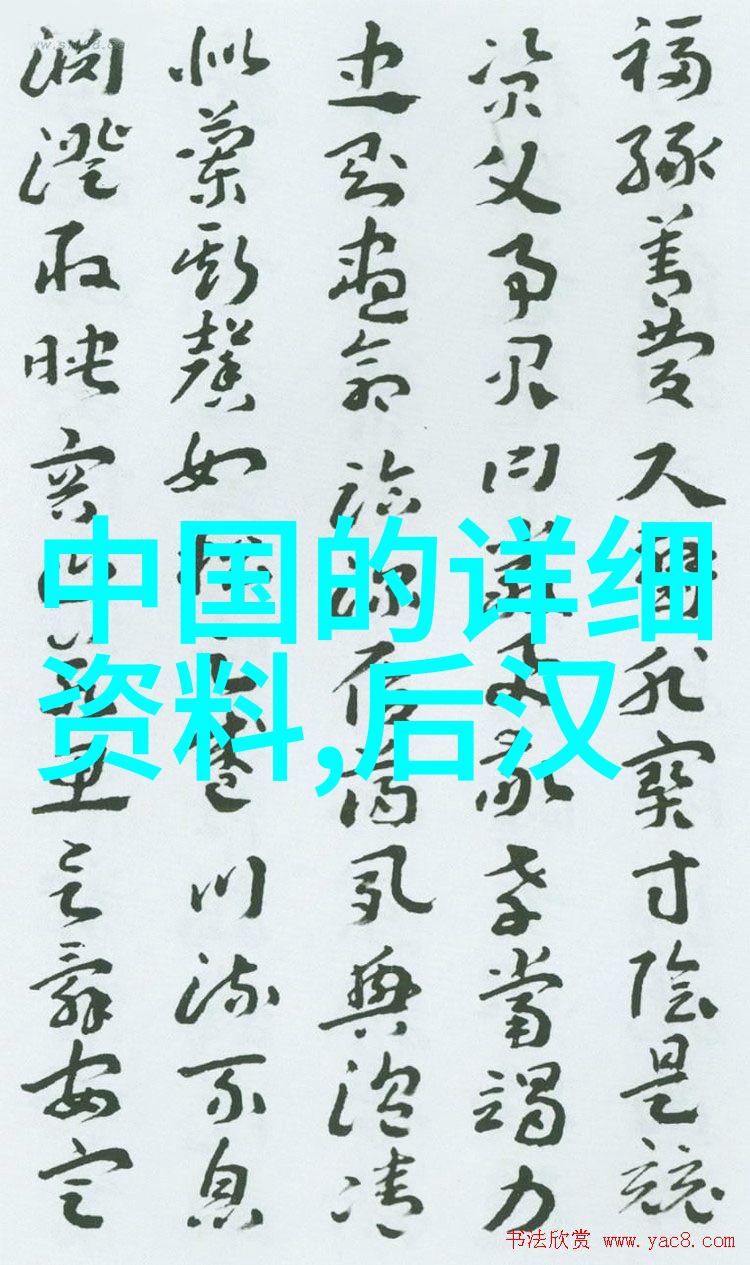 福緣善慶尺璧非寶寸陰是競
資父事君曰嚴與敬孝當竭力
忠則盡命臨深履薄夙興溫清
似蘭斯馨如松之盛川流不息
淵澄取映容止若思言辭安定
中国的详细
资料,后汉
书法欣赏 www.yac8.com